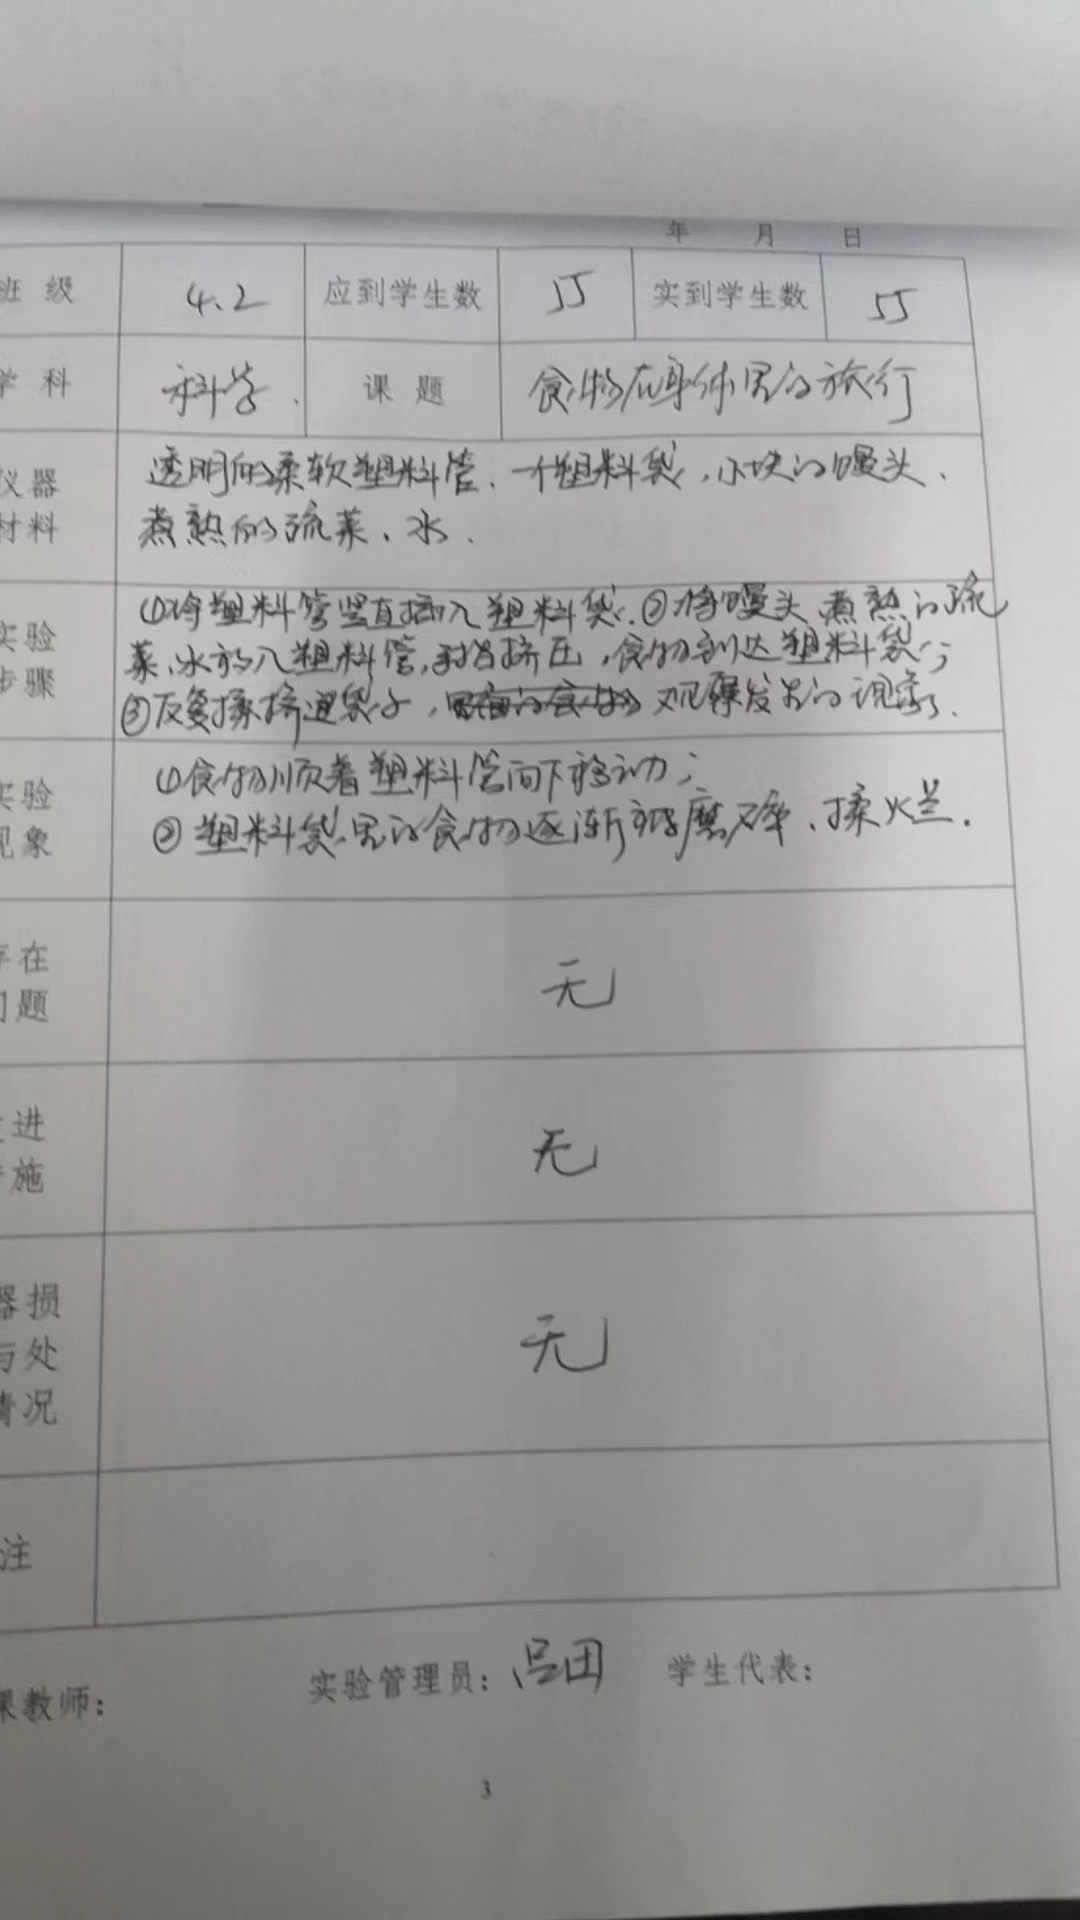 年 月 日
班级 4.2 应到学生数 55 实到学生数 55
学科 科学. 课题 食物在身体里的旅行
仪器 透明的柔软塑料管、一个塑料袋,小块的馒头、
材料 煮熟的蔬菜、水.
①将塑料管竖直插入塑料袋.②将馒头、煮熟的蔬
实验 菜、水放入塑料管,挤压,食物到达塑料袋;
步骤 ③反复揉挤袋子,观察发生的现象.
实验 ①食物顺着塑料管向下移动;
现象 ②塑料袋里的食物逐渐被磨碎、揉烂.
存在
问题 无
进
施 无
器损
与处 无
情况
注
课教师: 实验管理员: 学生代表:
3